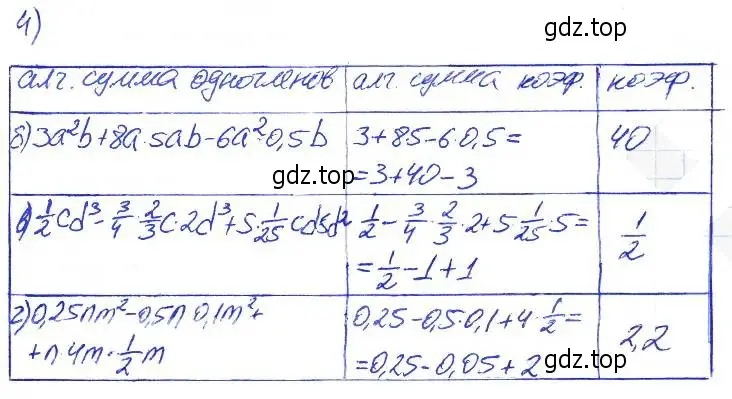 4)
gdz.top
алг. сумма одночленов | алг. сумма коэф. | коэф.
б) 3a²b+8a·5ab-6a²·0,5b | 3+8·5-6·0,5= | 40
=3+40-3
gdz.top
в) 1/2cd³-3/4·2/3c·2d³+5·1/25cd5d² | 1/2-3/4·2/3·2+5·1/25·5= | 1/2
=1/2-1+1
г) 0,25nm²-0,5n 0,1m²+ | 0,25-0,5·0,1+4·1/2= | 2,2
+n·4m·1/2m | =0,25-0,05+2
gdz.top
gdz.top